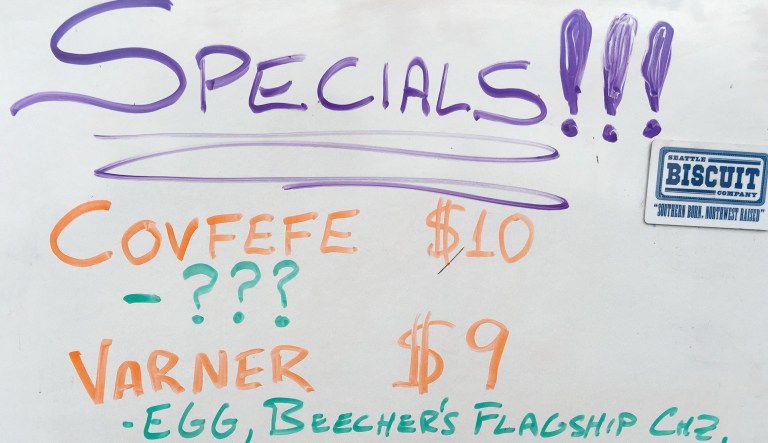 SPECIALS!!!
SEATTLE
BISCUIT
COMPANY
"SOUTHERN BORN, NORTHWEST RAISED"
COVFEFE $10
- ???
VARNER $9
- EGG, BEECHER'S FLAGSHIP CHZ,